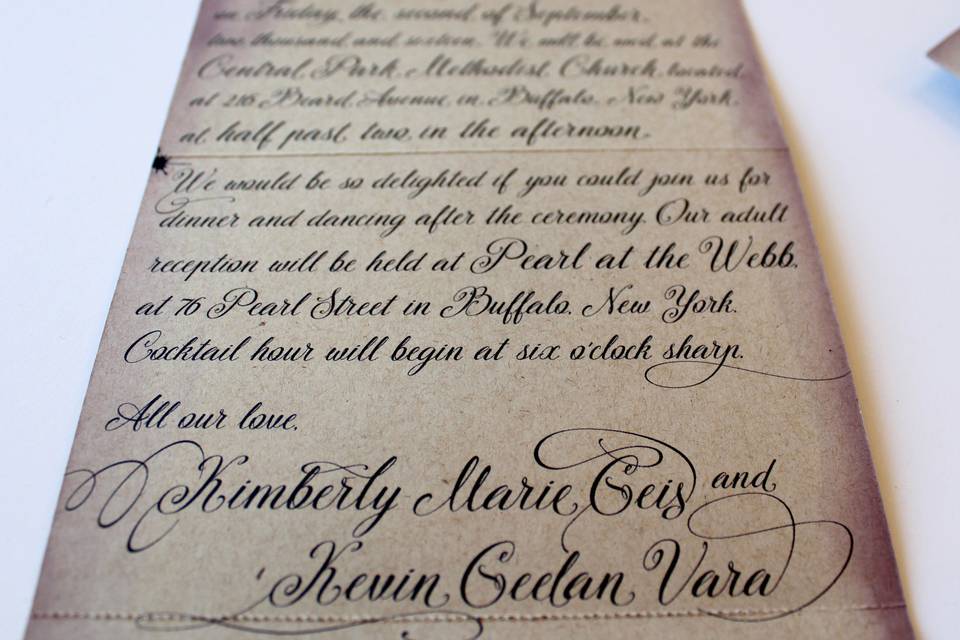 on Friday, the second of September,
two thousand and sixteen. We will be wed at the
Central Park Methodist Church, located
at 216 Beard Avenue in Buffalo, New York,
at half past two in the afternoon.
We would be so delighted if you could join us for
dinner and dancing after the ceremony. Our adult
reception will be held at Pearl at the Webb,
at 76 Pearl Street in Buffalo, New York.
Cocktail hour will begin at six o'clock sharp.
All our love,
Kimberly Marie Geis and
Kevin Geelan Vara